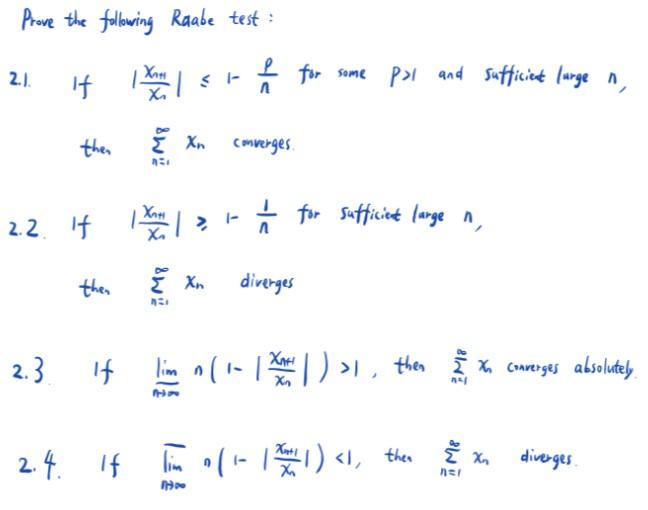 Prove the following Raabe test :
2.1. If |Xn+1/Xn| ≤ 1 - p/n for some p>1 and sufficient large n,
then ∑_{n=1}^{∞} Xn converges.
2.2. If |Xn+1/Xn| ≥ 1 - 1/n for sufficient large n,
then ∑_{n=1}^{∞} Xn diverges
2.3. If \underline{lim}_{n→∞} n(1 - |Xn+1/Xn|) >1, then ∑_{n=1}^{∞} Xn converges absolutely.
2.4. If \overline{lim}_{n→∞} n(1 - |Xn+1/Xn|) <1, then ∑_{n=1}^{∞} Xn diverges.